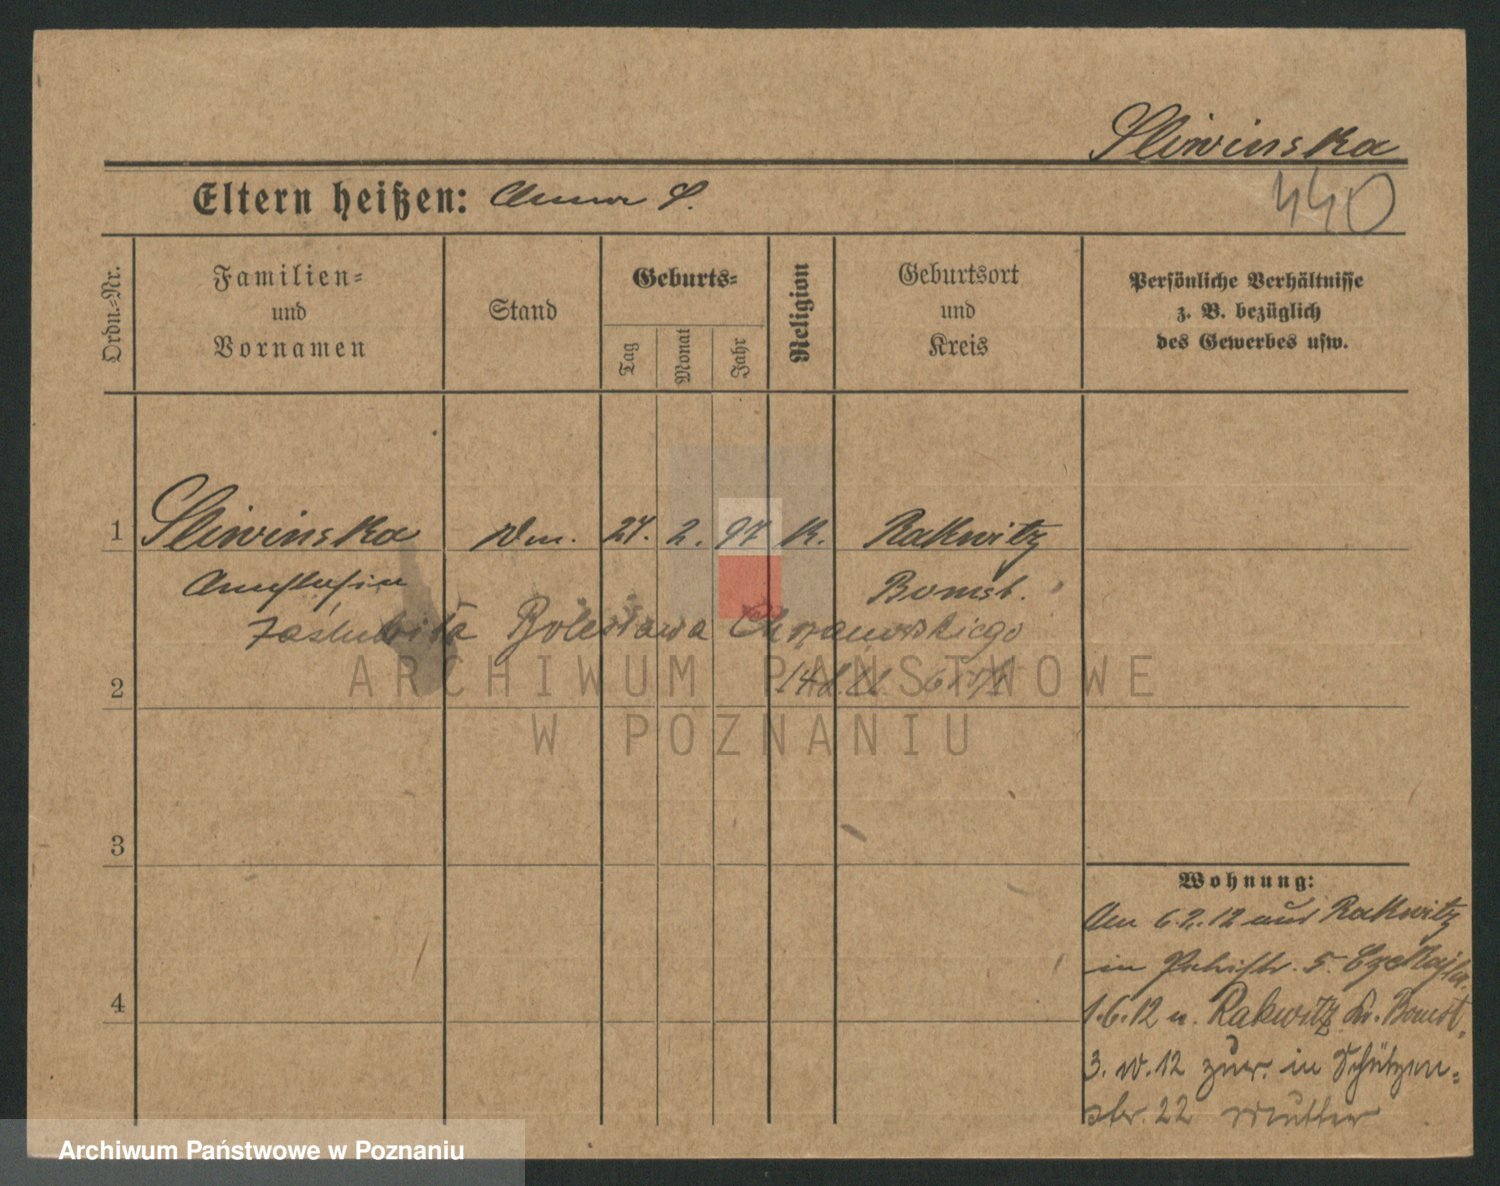 Sliwinska
Eltern heißen: Anna S.
440
Ordn.-Nr.
Familien-
und
Vornamen
Stand
Geburts-
Tag
Monat
Jahr
Religion
Geburtsort
und
Kreis
Persönliche Verhältnisse
z. B. bezüglich
des Gewerbes usw.
1 Sliwinska 27. 2. 97 K. Rakwitz
Bomst.
zaślubiła Bolesława Chrzanowskiego
2
3
4
Wohnung:
Am 6.2.12 aus Rakwitz
in 5.
1.6.12 n. Rakwitz Kr. Bomst.
3. 12 zur. in Schützen-
str. 22 Mutter
ARCHIWUM PAŃSTWOWE
W POZNANIU
Archiwum Państwowe w Poznaniu